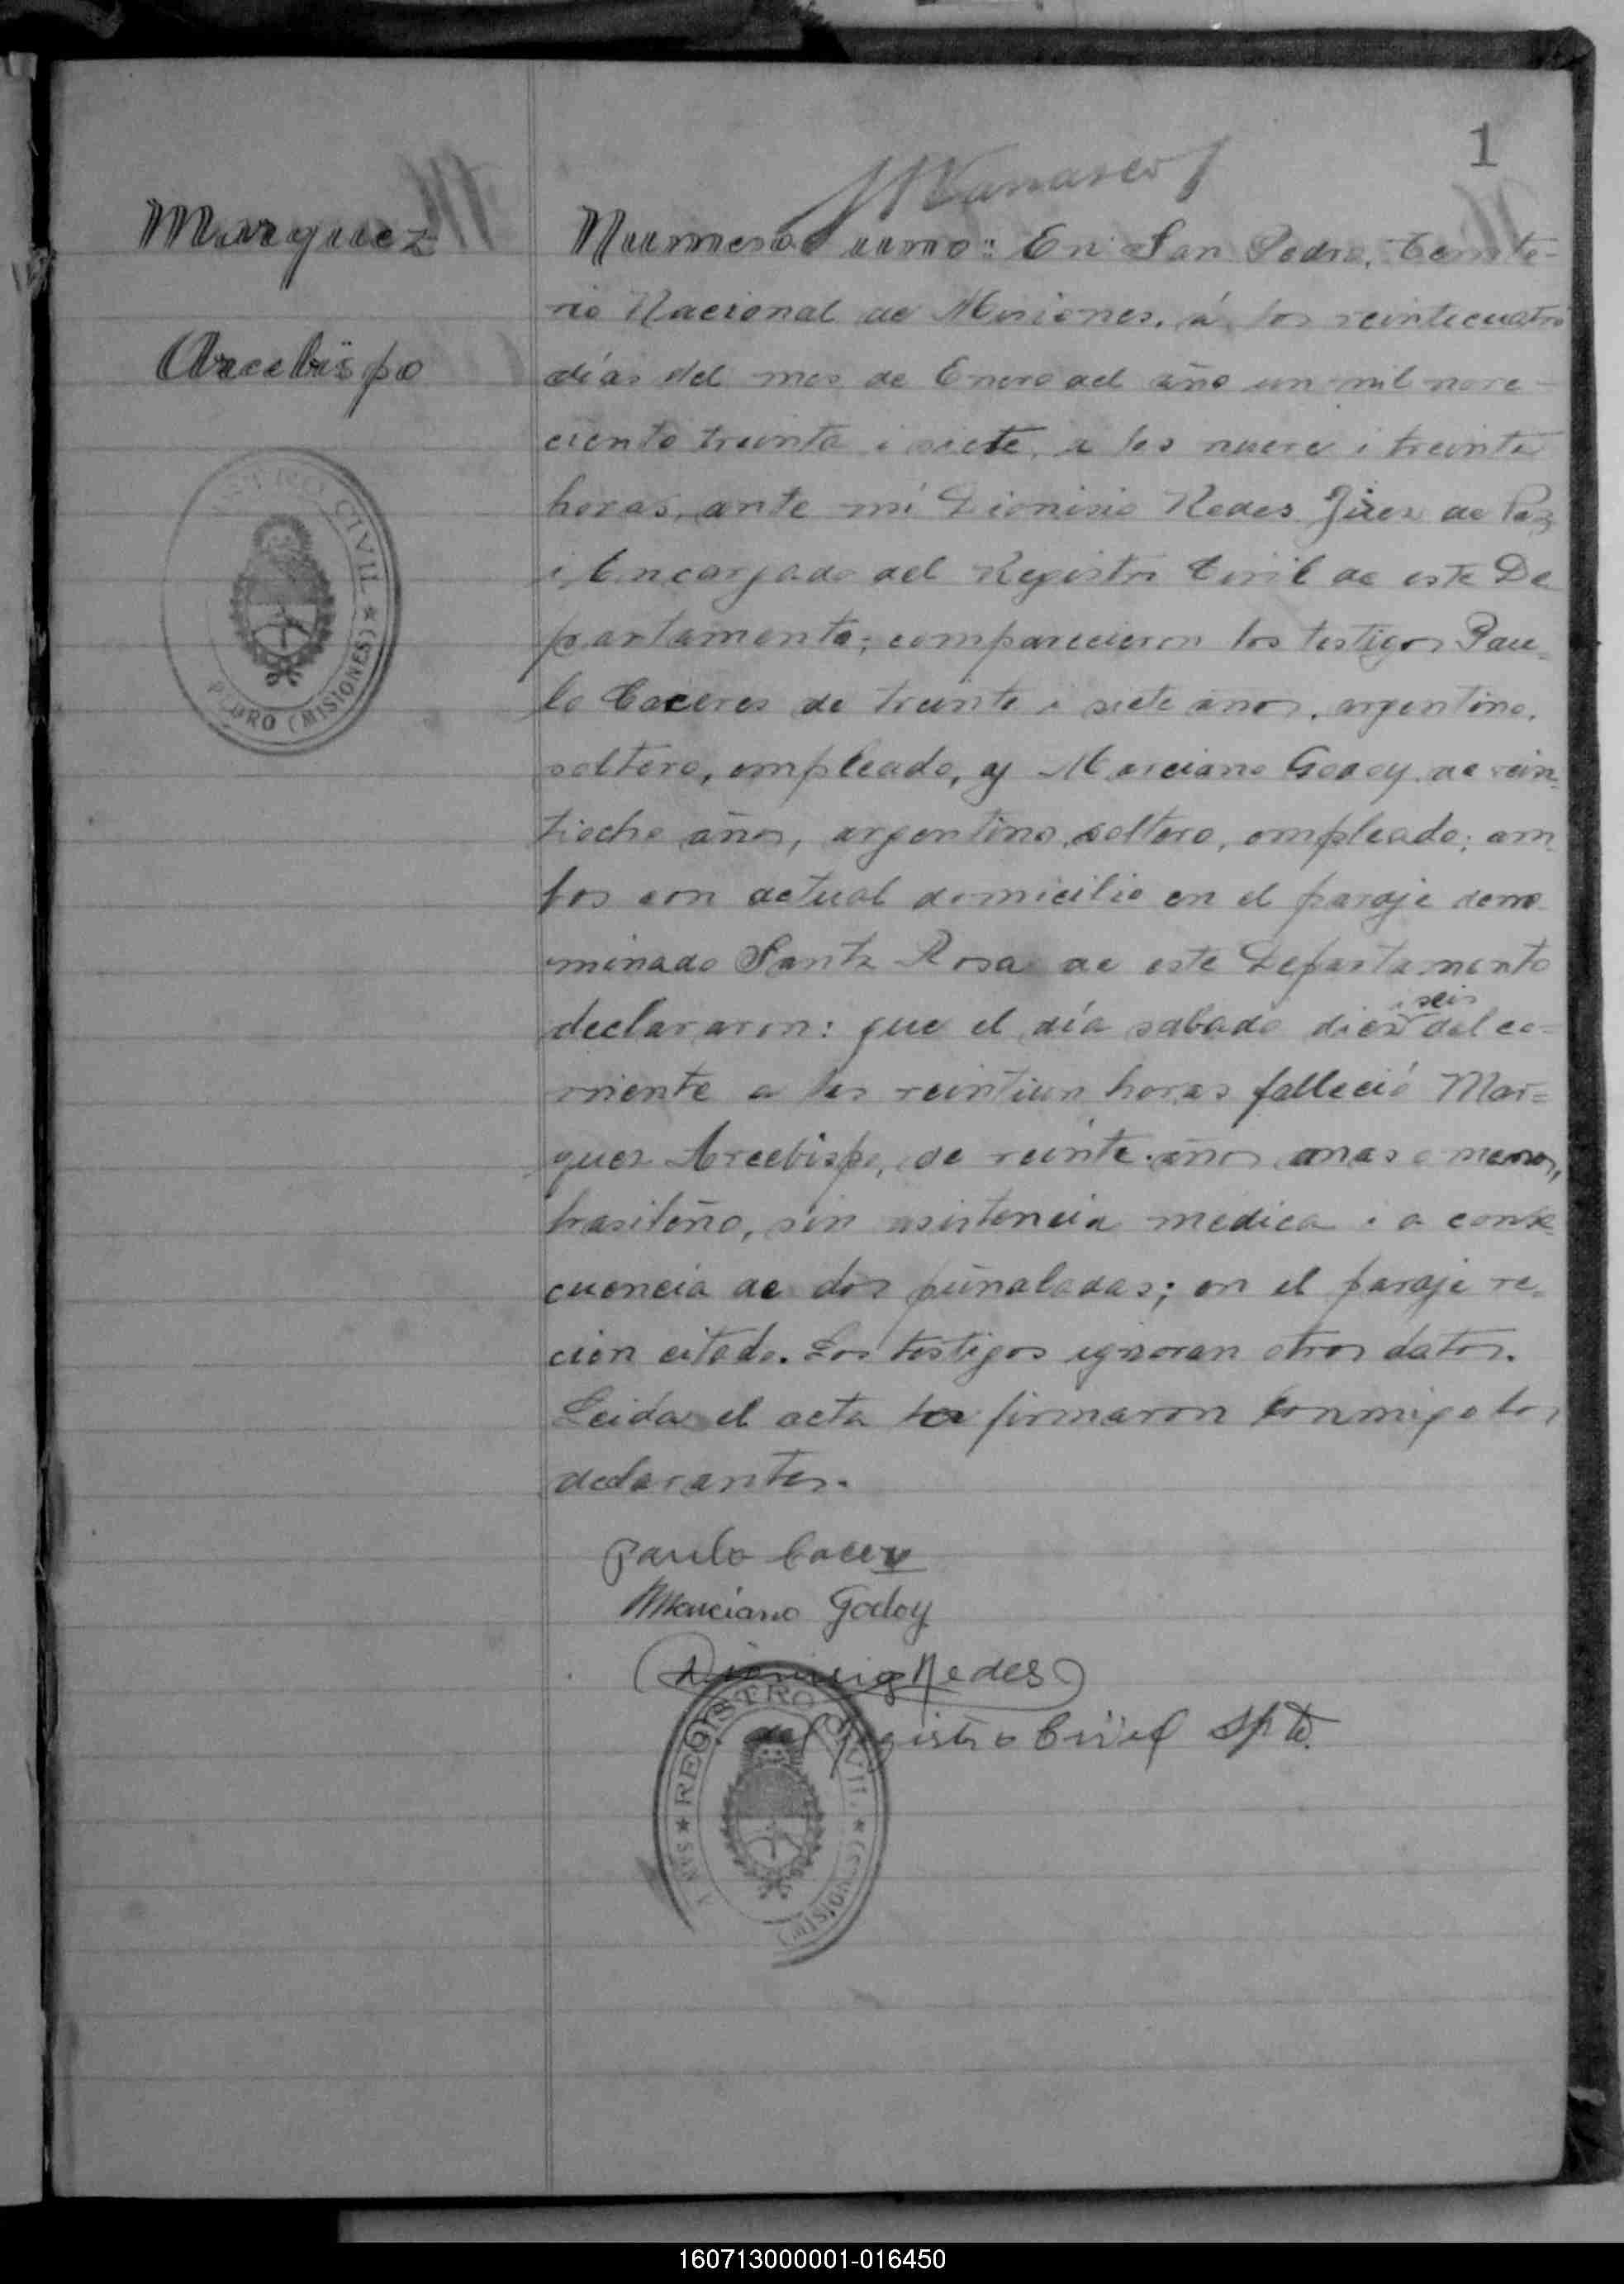 1
Marquez
Arcebispo
REGISTRO CIVIL ★ (MISIONES)
PEDRO
Numero uno: En San Pedro, Territo-
rio Nacional de Misiones, á los veinticuatro
días del mes de Enero del año un mil nove-
ciento treinta i siete, a las nueve i treinta
horas, ante mí Dionisio Redes Juez de Paz
i Encargado del Registro Civil de este De
partamento; comparecieron los testigos Pau-
lo Caceres de treinta i siete años, argentino,
soltero, empleado, y Marciano Godoy de vein-
tiocho años, argentino, soltero, empleado; am
bos con actual domicilio en el paraje deno
minado Santa Rosa de este Departamento
declararon: que el día sabado diez i seis del co=
rriente a las veintiun horas falleció Mar=
quez Arcebispo, de veinte años mas o menos,
brasileño, sin asistencia medica i a conse
cuencia de dos puñaladas; en el paraje re-
cien citado. Los testigos ignoran otros datos.
Leida el acta la firmaron conmigo los
declarantes.
Paulo Caceres
Marciano Godoy
Dionisio Redes
Registro Civil
SAN ★ REGISTRO CIVIL ★ (MISIONES)
160713000001-016450